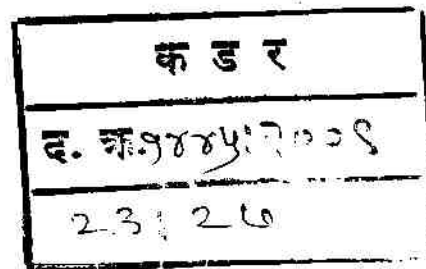 क ड र
द. क्र.१४४५।२००९
23। 26